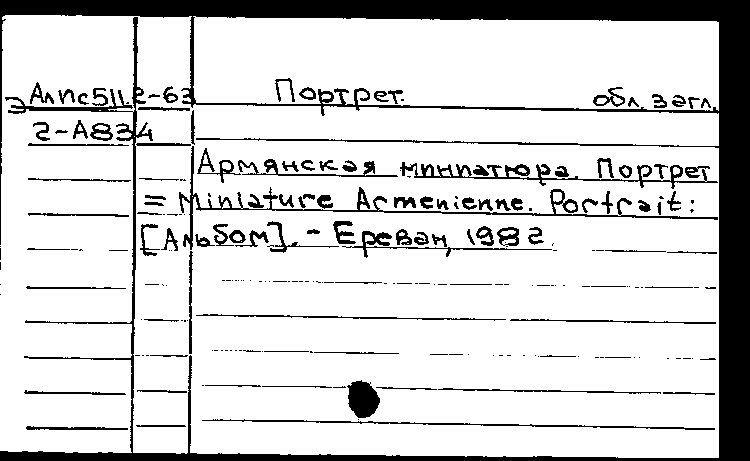 Э АлПс511.2-63 Портрет. обл. загл.
2-А834
Армянская миниатюра. Портрет
= Miniature Armenienne. Portrait:
[Альбом]. - Ереван, 1982.